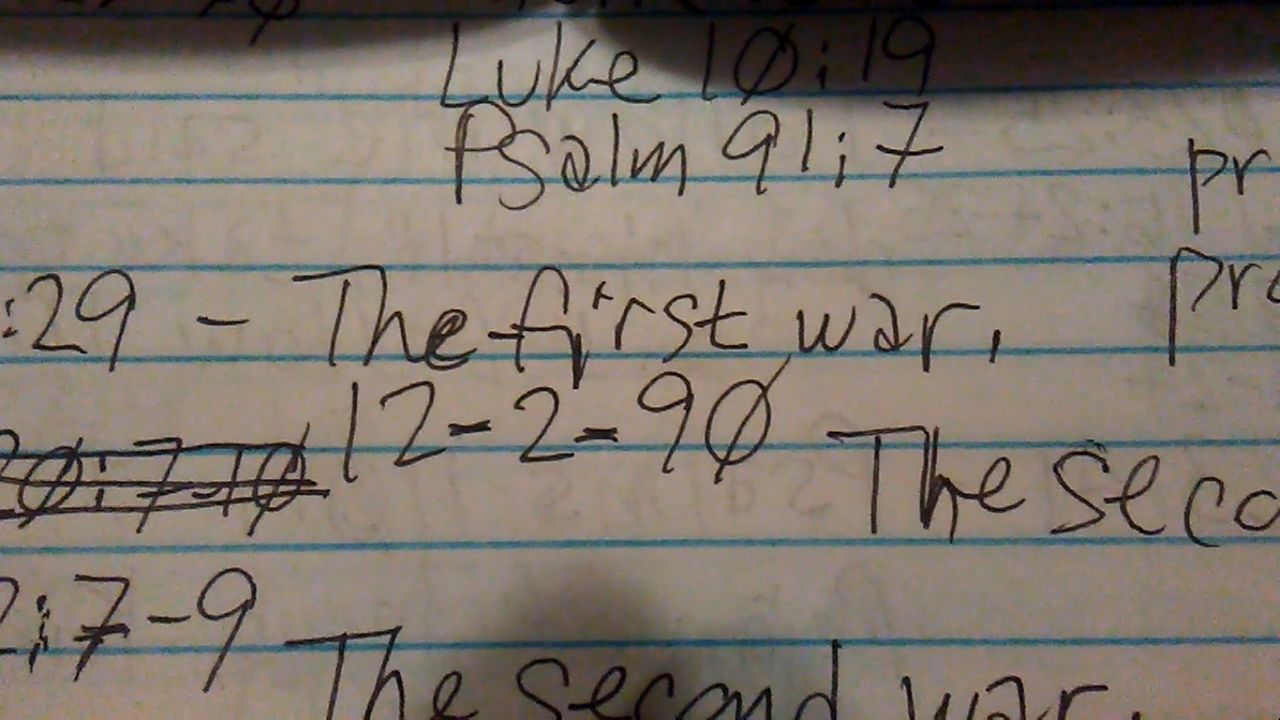 Luke 10:19
Psalm 91:7
pr
:29 - The first war. pro
20:7-10 12-2-90 The seco
2:7-9
The second war.